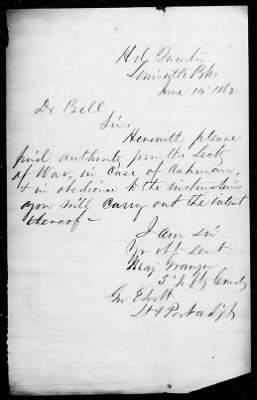 Hd Qrs
Louisville Bks
June 14 1862
Dr Bell
Sir,
Herewith please
find authority from the Secty
of War, in Case of Ashman,
& in obedience to the instructions
you will Carry out the intent
thereof —
I am Sir
Yr obt Servt
Maj Granger
5" Infy Comdg
Lt & Post adjt